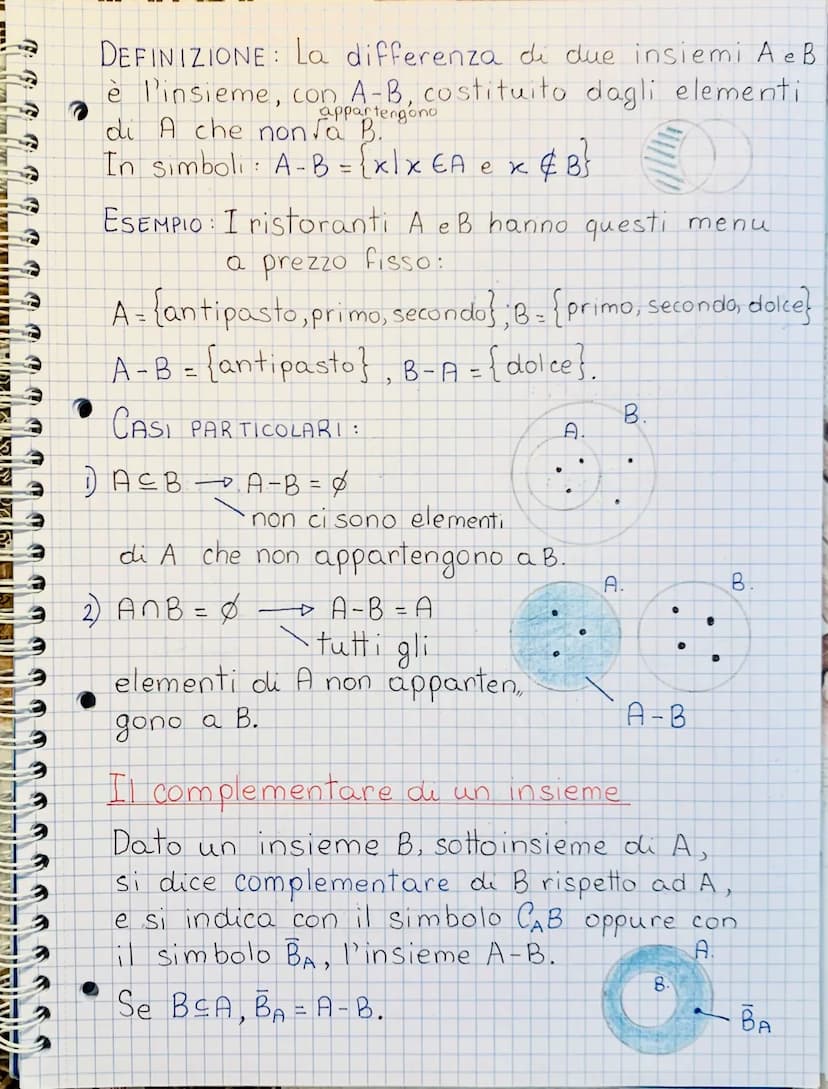 DEFINIZIONE: La differenza di due insiemi A e B
è l'insieme, con A-B, costituito dagli elementi
appartengono
di A che non √a B.
In simboli: A-B = {x|x ∈A e x ∉ B}
ESEMPIO: I ristoranti A e B hanno questi menu
a prezzo fisso:
A={antipasto, primo, secondo}; B={primo, secondo, dolce}
A-B = {antipasto}, B-A = {dolce}.
CASI PARTICOLARI:
A.
B.
1) A⊆B → A-B = ∅
non ci sono elementi
di A che non appartengono a B.
A.
B.
2) A∩B = ∅ → A-B = A
tutti gli
elementi di A non apparten„
gono a B.
A-B
Il complementare di un insieme
Dato un insieme B, sottoinsieme di A,
si dice complementare di B rispetto ad A,
e si indica con il simbolo C_A B oppure con
il simbolo B̄_A, l'insieme A-B.
A.
B.
Se B⊆A, B̄_A = A-B.
B̄_A